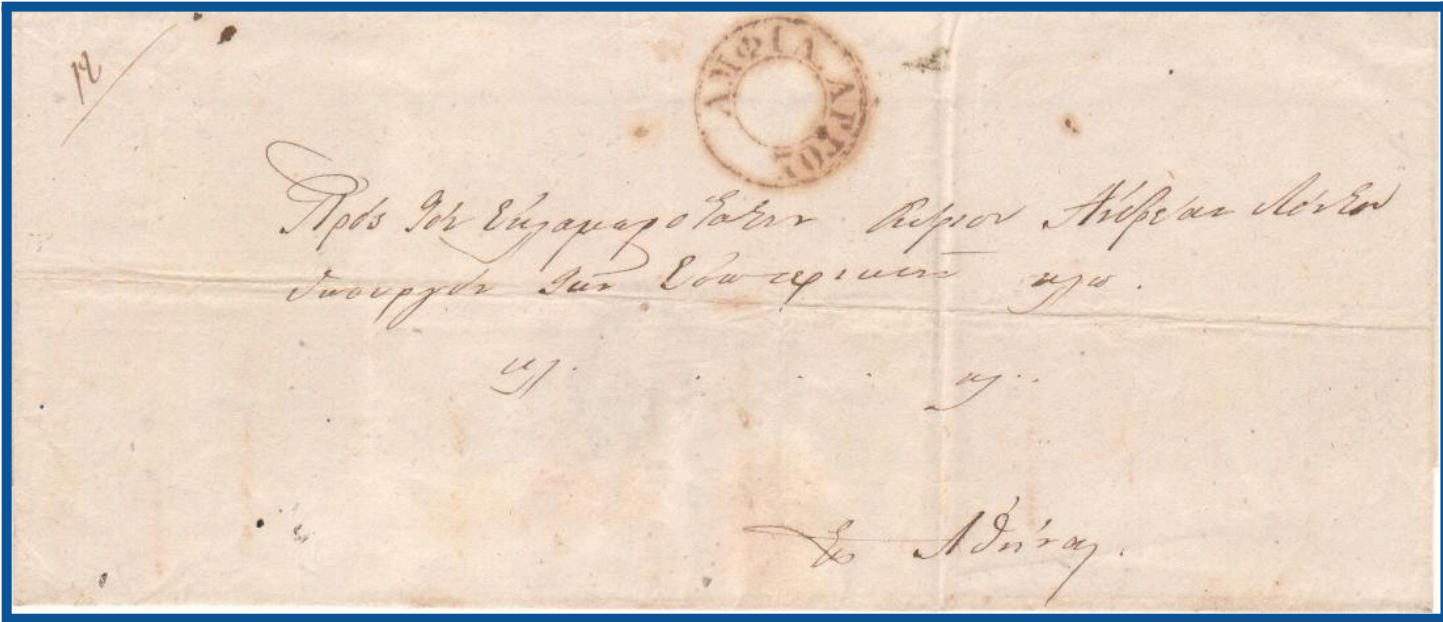 12
ΑΜΦΙΛ ΑΡΓΟΣ
Πρὸς τὸν Ἐκλαμπρότατον Κύριον Ἀνδρέαν Λόντον
Ὑπουργὸν τῶν Ἐσωτερικῶν κλπ.
κλ. . . . κλ..
Εἰς Ἀθήνας.